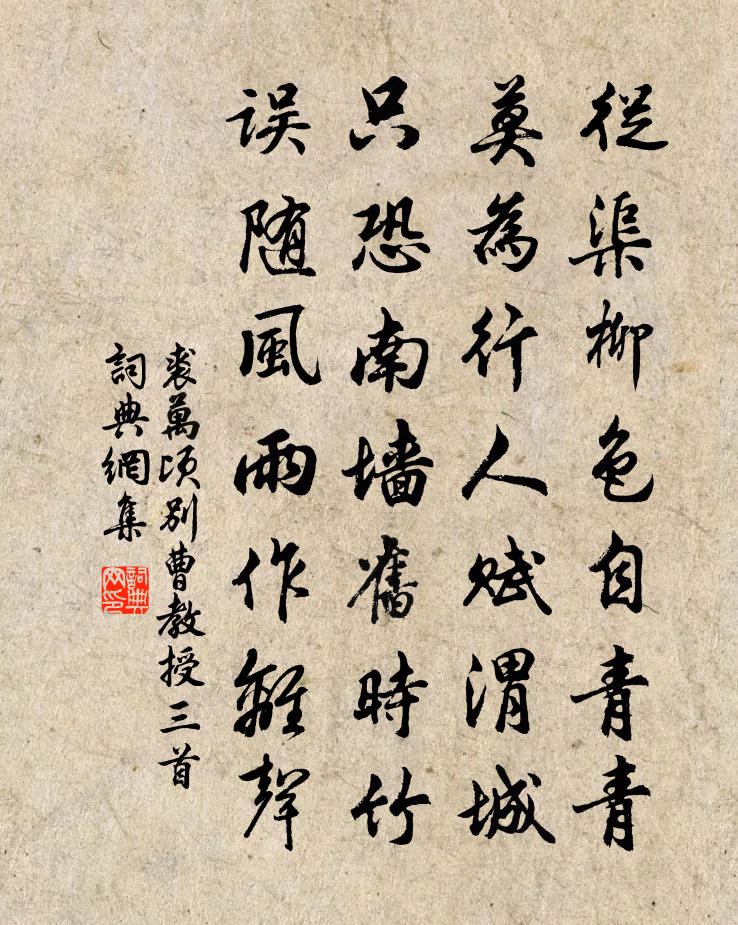 從渠柳色自青青
莫為行人賦渭城
只恐南墻舊時竹
误随風雨作離聲
裘萬頃別曹教授三首
詞典網集
詞典网印